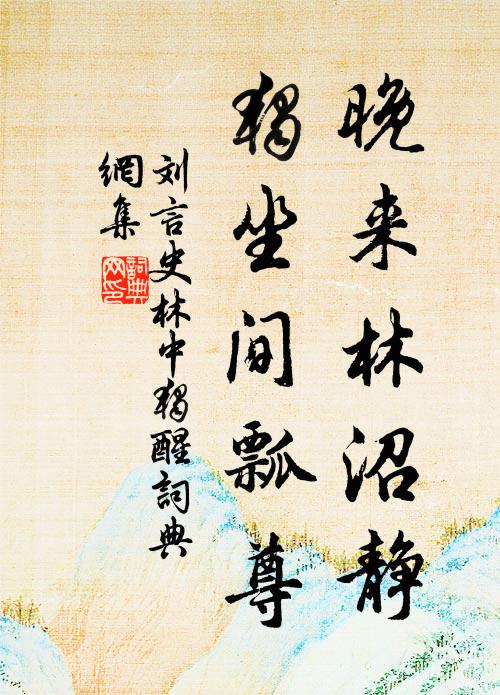 晚来林沼静
独坐间瓢尊
刘言史林中独醒詞典
網集
詞典網印